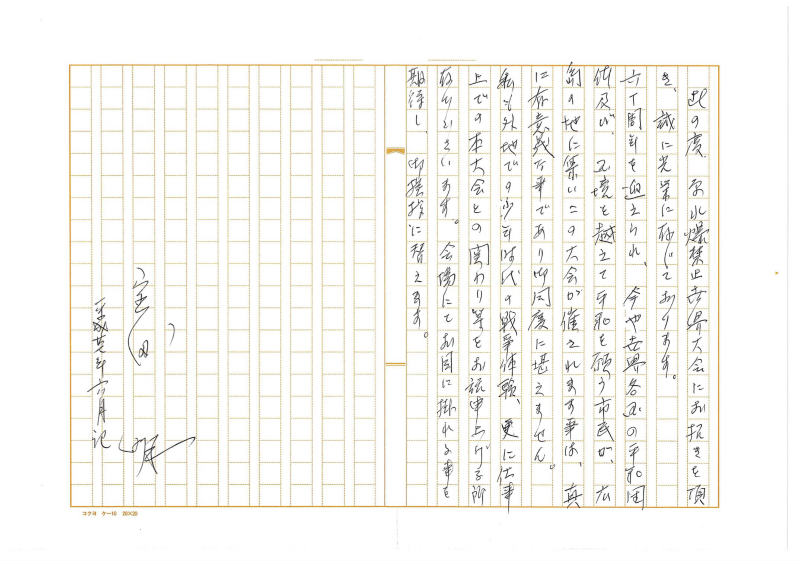 此の度、原水爆禁止世界大会にお招きを頂
き、誠に光栄に存じております。
六十周年を迎えられ、今や世界各国の平和団
体及び、国境を越えて平和を願う市民が、広
島の地に集いこの大会が催されます事は、真
に有意義な事であり御同慶に堪えません。
私も外地での少年時代の戦争体験、更に仕事
上での本大会との関わり等をお話申上げる所
存でございます。会場にてお目に掛れる事を
期待し、御挨拶に替えます。
宝田 明
平成廿七年六月記
コクヨ ケー10 20×20